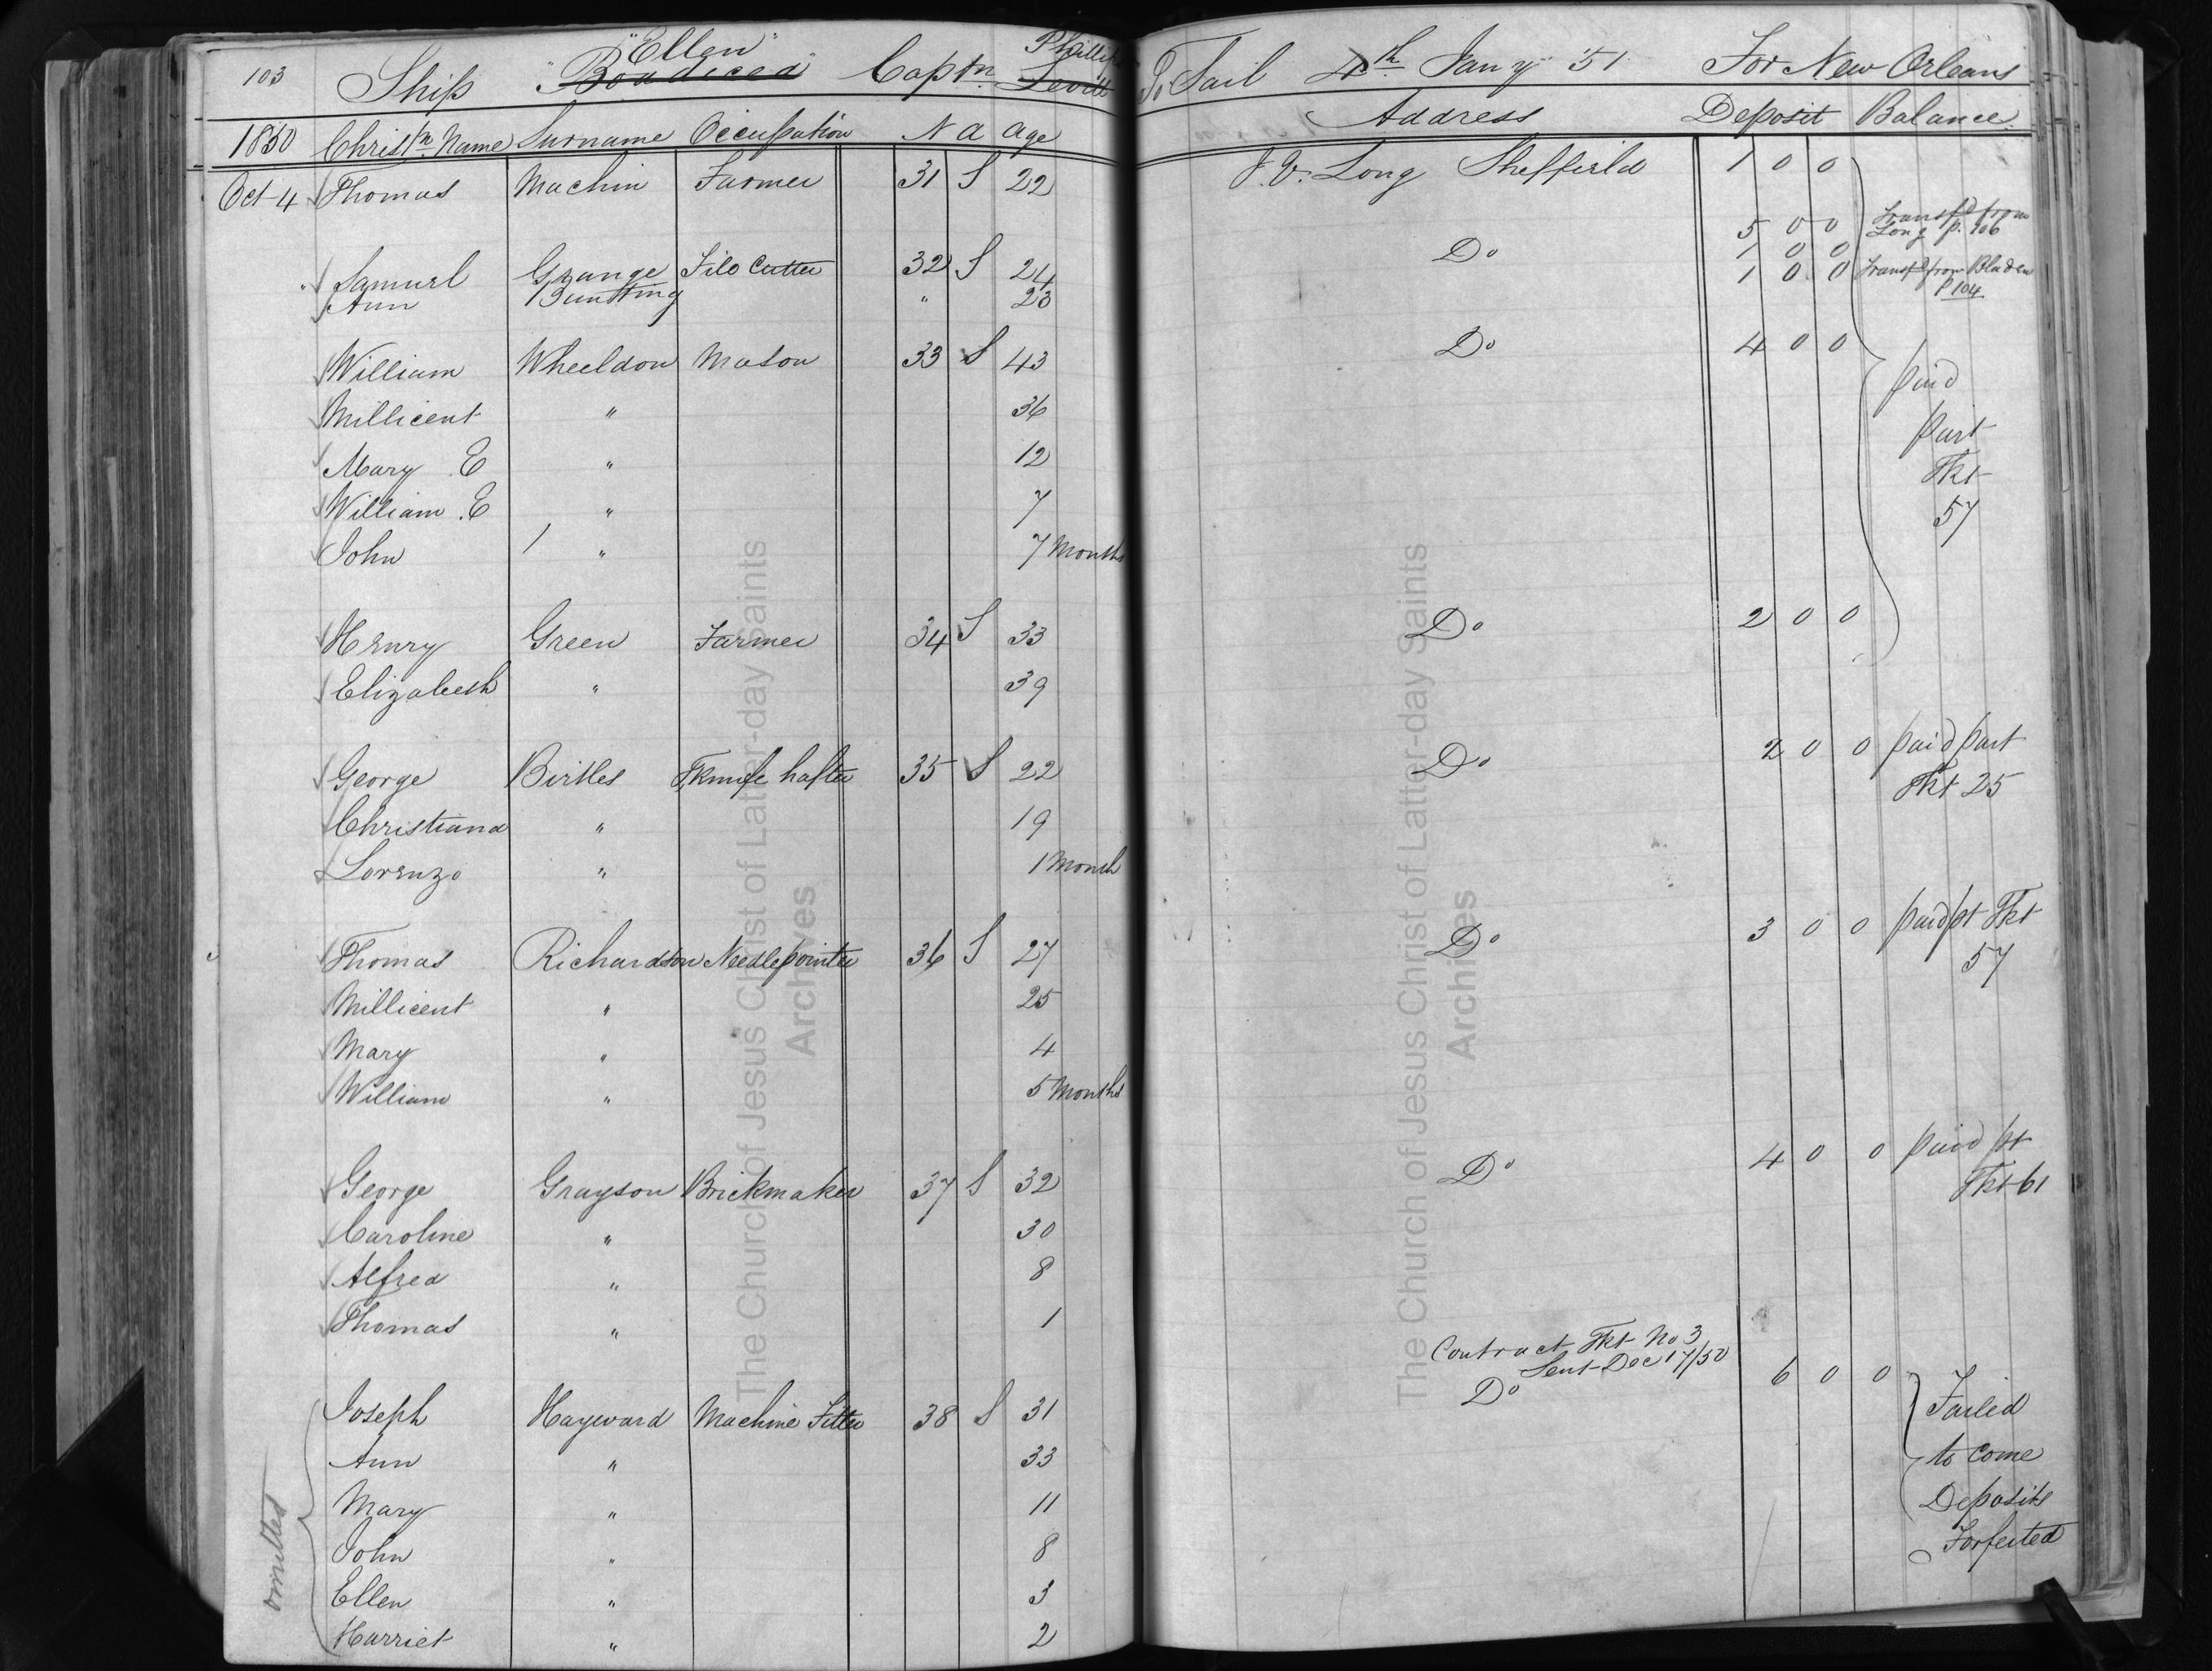 103 Ship "Ellen" "Boadicea" Captn Phillips Levitt To Sail 4th Jany 51 For New Orleans
1850 Christn. Name Surname Occupation N a age Address Deposit Balance
Oct 4 Thomas Machin Farmer 31 S 22 J. V. Long Sheffield 1 0 0
5 0 0 Transfd from Long p. 106
Samuel Grange File Cutter 32 S 24 Do 1 0 0
Ann Buntting " 23 1 0 0 Transfd from Bladen P 104
William Wheeldon Mason 33 S 43 Do 4 0 0 paid
Millicent " 36 part
Mary E " 12 Tkt
William E " 7 57
John " 7 Months
Henry Green Farmer 34 S 33 Do 2 0 0
Elizabeth " 39
George Birtles T,knife hafter 35 S 22 Do 2 0 0 paid part
Tkt 25
Christiana " 19
Lorenzo " 1 Month
Thomas Richardson Needlepointer 36 S 27 Do 3 0 0 paid pt Tkt
57
Millicent " 25
Mary " 4
William " 5 Months
George Grayson Brickmaker 37 S 32 Do 4 0 0 paid pt
Tkt 61
Caroline " 30
Alfred " 8
Thomas " 1
Contract Tkt No 3
Sent Dec 17/50
Joseph Hayward Machine Fitter 38 S 31 Do 6 0 0 Failed
Ann " 33 to come
Mary " 11 Deposits
John " 8 Forfeited
Ellen " 3
Harriet " 2
omitted
The Church of Jesus Christ of Latter-day Saints
Archives
The Church of Jesus Christ of Latter-day Saints
Archives